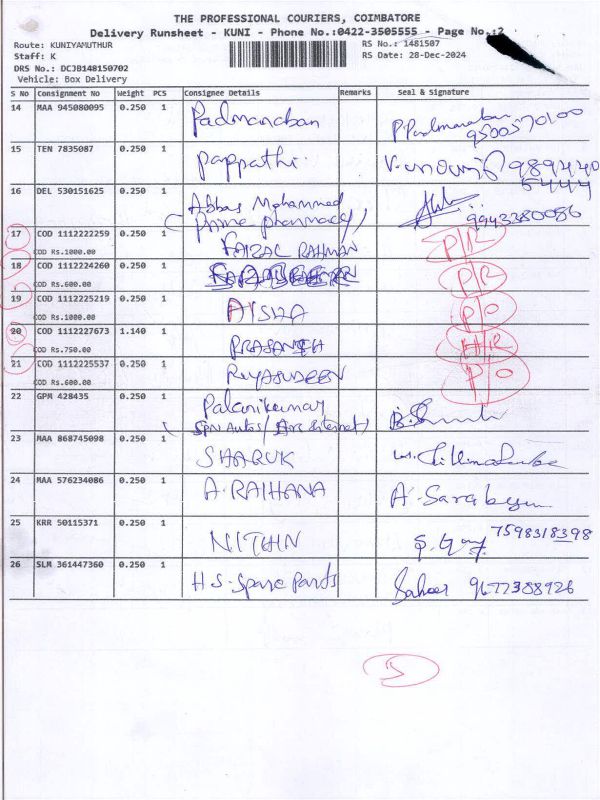 THE PROFESSIONAL COURIERS, COIMBATORE
Delivery Runsheet - KUNI - Phone No.:0422-3505555 - Page No.:2
Route: KUNIYAMUTHUR
Staff: K
RS No.: 1481507
DRS No.: DCJB148150702
RS Date: 28-Dec-2024
Vehicle: Box Delivery
S No Consignment No Weight PCS Consignee Details Remarks Seal & Signature
14 MAA 945080095 0.250 1 Padmanaban P.Padmanaban
9500570100
15 TEN 7835087 0.250 1 Pappathi. 989440
54444
16 DEL 530151625 0.250 1 Abbas Mohammed
(Prime pharmacy) 9943380086
17 COD 1112222259 0.250 1 FAIZAL RAHMAN P/R
COD Rs.1000.00
18 COD 1112224260 0.250 1 P/R
COD Rs.600.00
19 COD 1112225219 0.250 1 AISHA P/O
COD Rs.1000.00
20 COD 1112227673 1.140 1 PRASANTH H/R
COD Rs.750.00
21 COD 1112225537 0.250 1 RIYASUDEEN P/O
COD Rs.600.00
22 GPM 428435 0.250 1 Palanikumar
23 MAA 868745098 0.250 1 SHARUK
24 MAA 576234086 0.250 1 A.RAIHANA A. Sarabegum
25 KRR 50115371 0.250 1 NITHIN 7598318398
26 SLM 361447360 0.250 1 H S - Spare Parts Saheer 9677388926
5